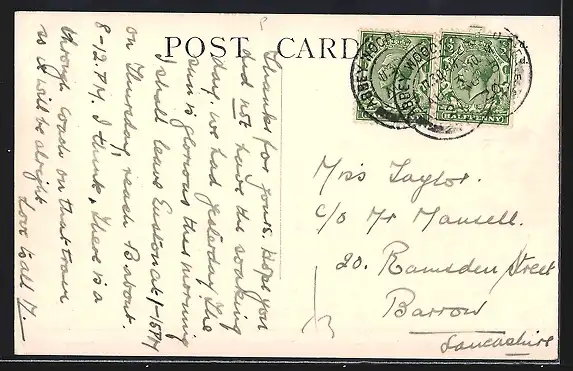 POST CARD
Thanks for yours. Hope you
did not have the soaking
day. we had yesterday. The
sun is glorious this morning
I shall leave Euston at 1-15 PM
on Thursday, reach B about
8-12. P.M. I think. There is a
through coach on that train
so I will be alright
Love to all
ABBEY WOOD
ABBEY WOOD
HALFPENNY
Miss Taylor.
c/o Mr Mansell.
20. Ramsden Street
Barrow
Lancashire